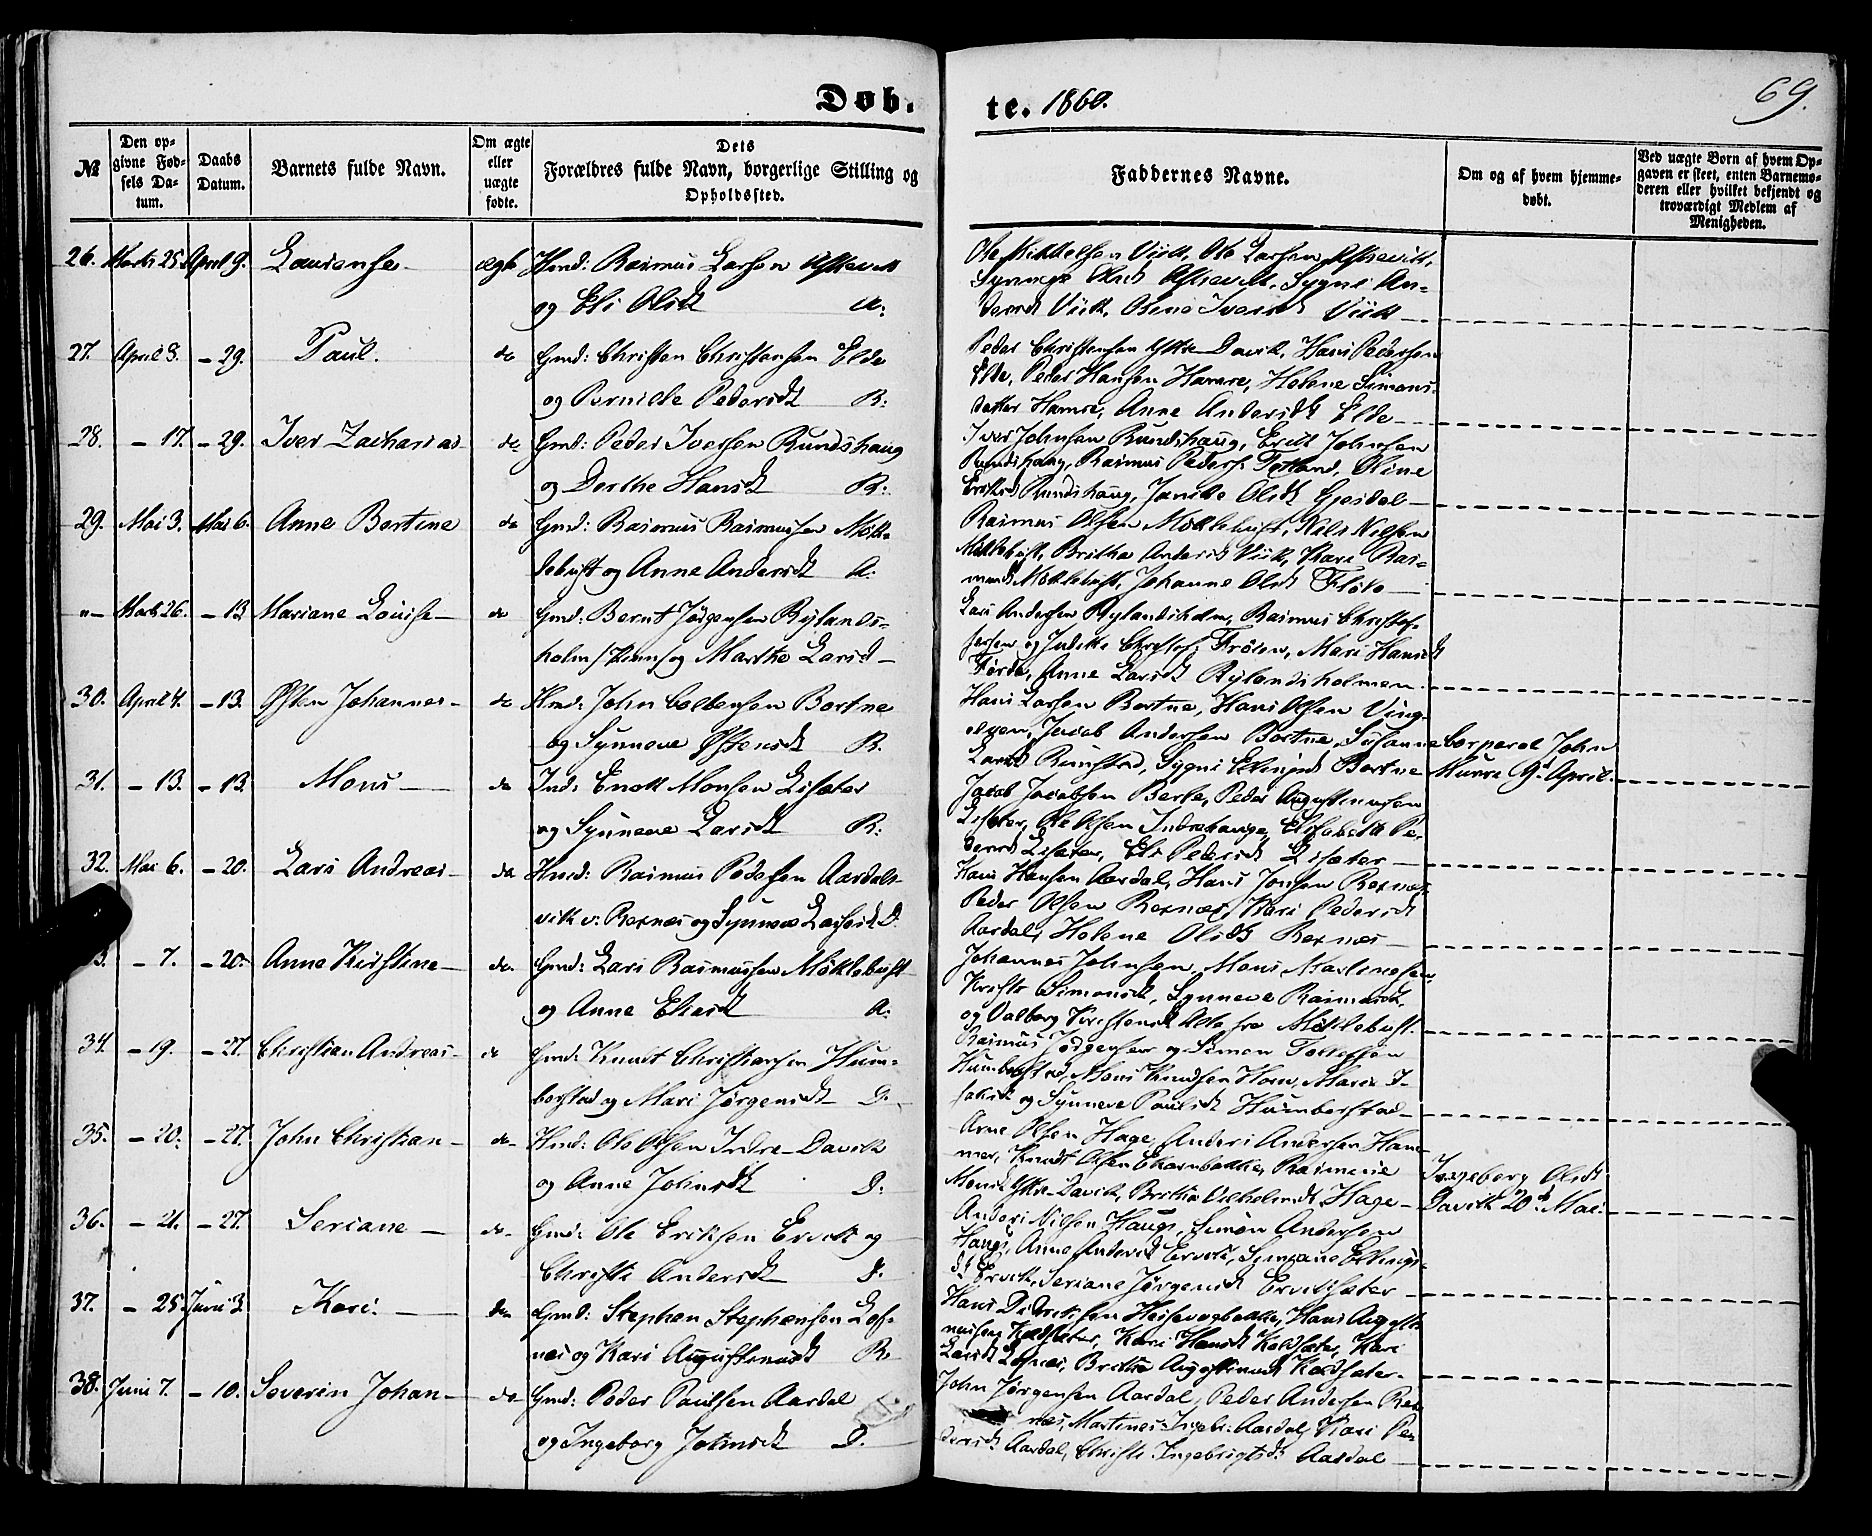 Døb- te. 1860. 69.
№ Den opgivne Fødsels Datum. Daabs Datum. Barnets fulde Navn. Om ægte eller uægte fødte. Dets Forældres fulde Navn, borgerlige Stilling og Opholdssted. Faddernes Navne. Om og af hvem hjemmedøbt. Ved uægte Børn af hvem Opgaven er skeet, enten Barnemoderen eller hvilket bekjendt og troværdigt Medlem af Menigheden.
26. Marts 25. April 9. Laurense ægte Hmd: Rasmus Larsen
og Eli Olsdt A:
Ole Mikkelsen Viik, Ole Larsen
Viik, Oline Iversdt Viik
27. April 3. - 29. Paul. do Gmd: Christen Christensen Elde
og Pernille Pedersdt R:
Peder Christensen Ytre Davik, Hans Pedersen
Elde, Peder Hansen Hamre, Helene Simons-
datter Hamre, Anne Andersdt Elde
28. - 17. - 29. Iver Zacharias do Gmd: Peder Iversen Rundshaug
og Dorthe Hansdt R:
Iver Johnsen Rundshaug, Erik Johnsen
Rundshaug, Rasmus Peders: Oline
Eriksd Rundshaug, Janike Olsdt Gjesdal
29. Mai 3. Mai 6. Anne Bertine do Gmd: Rasmus Rasmussen Møk-
lebust og Anne Andersdt A:
Rasmus Olsen Møklebust, Nils Nilsen
Møklebust, Brithe Andersdt Viik, Kari Ras-
musdt Møklebust, Johanne Olsdt
"- Marts 26. - 13. Mariane Louise do Gmd: Bernt Jørgensen Rylands-
holm /Kinn/ og Marthe Larsd
Lars Andersen Rylandsholm, Rasmus Christof-
fersen og Christof: Frøien, Mari Hansdt
Førde, Anne Larsdt Rylandsholmen
30. April 4. - 13. Østen Johannes do Hmd: John Colbensen Bortne
og Synneve Østensdt R.
Hans Larsen Bortne, Hans Olsen Ving-
elven, Jacob Andersen Bortne, Susanne
Larsdt Sygni Bortne
Corporal John
9d April.
31. - 13. - 13. Mons do Ind: Enok Monsen Lisæter
og Synneve Larsdt R:
Jacob Jacobsen Berle, Peder Augustinusen
Lisæter, Ole Olsen Indrehauge, Elisabeth Pe-
dersd Lisæter, Eli Pedersdt Lisæter
32. Mai 6. - 20. Lars Andreas do Hmd: Rasmus Pedersen Aardals-
vik v: Rexnæs og Synneve D.
Hans Hansen Aardal, Hans Jonsen Rexnæs
Peder Olsen Rexnæs, Kari Pedersdt
Aardal, Helene Olsdt Rexnæs
3. - 7. - 20. Anne Kirstine do Gmd: Lars Rasmussen Møklebust
og Anne Eliasdt A:
Johannes Johnsen, Mons Martinussen,
Simonsdt, Synneve Rasmusdt,
og Valborg Alle fra Møklebust
34. - 19. - 27. Christian Andreas do Gmd: Knudt Christiansen Hum-
borstad og Mari Jørgensdt D.
Rasmus Jørgensen og Simon Tollefsen
Humborstad, Mons Knudsen Maria I-
saksdt og Synneve Paulsdt Humborstad
35. - 20. - 27. John Christian do Hmd: Ole Olsen Indre-Davik
og Anne Johnsdt D:
Arne Olsen Hage, Anders Andersen Ham-
mer, Knudt Olsen Rasmine
Monsdt Ytre-Davik, Brithe Hage
Ingeborg Olsdt
Davik 20d Mai.
36. - 21. - 27. Seriane do Gmd: Ole Eriksen Ervik og
Christi Andersdt D.
Anders Nilsen Hauge, Simon Andersen
Hauge, Anne Andersdt Ervik, Simiane
dt Ervik, Seriane Jørgensdt Erviksæter
37. - 25. Juni 3. Kari. do Gmd: Stephen Stephensen Lef-
næs og Kari Augustinusdt R.
Hans Didriksen Hans August-
nusen Koldsæter, Kari Hansdt Koldsæter, Kari
Larsdt Lefnæs, Brithe Augustinusdt Koldsæter
38. Juni 7. - 10. Severin Johan do Gmd: Peder Paulsen Aardal
og Ingeborg Johnsdt D.
John Jørgensen Aardal, Peder Andersen Rex-
næs, Martines Ingebr: Aardal, Kari Pe-
dersdt Aardal, Christi Ingebrigtsdt Aardal